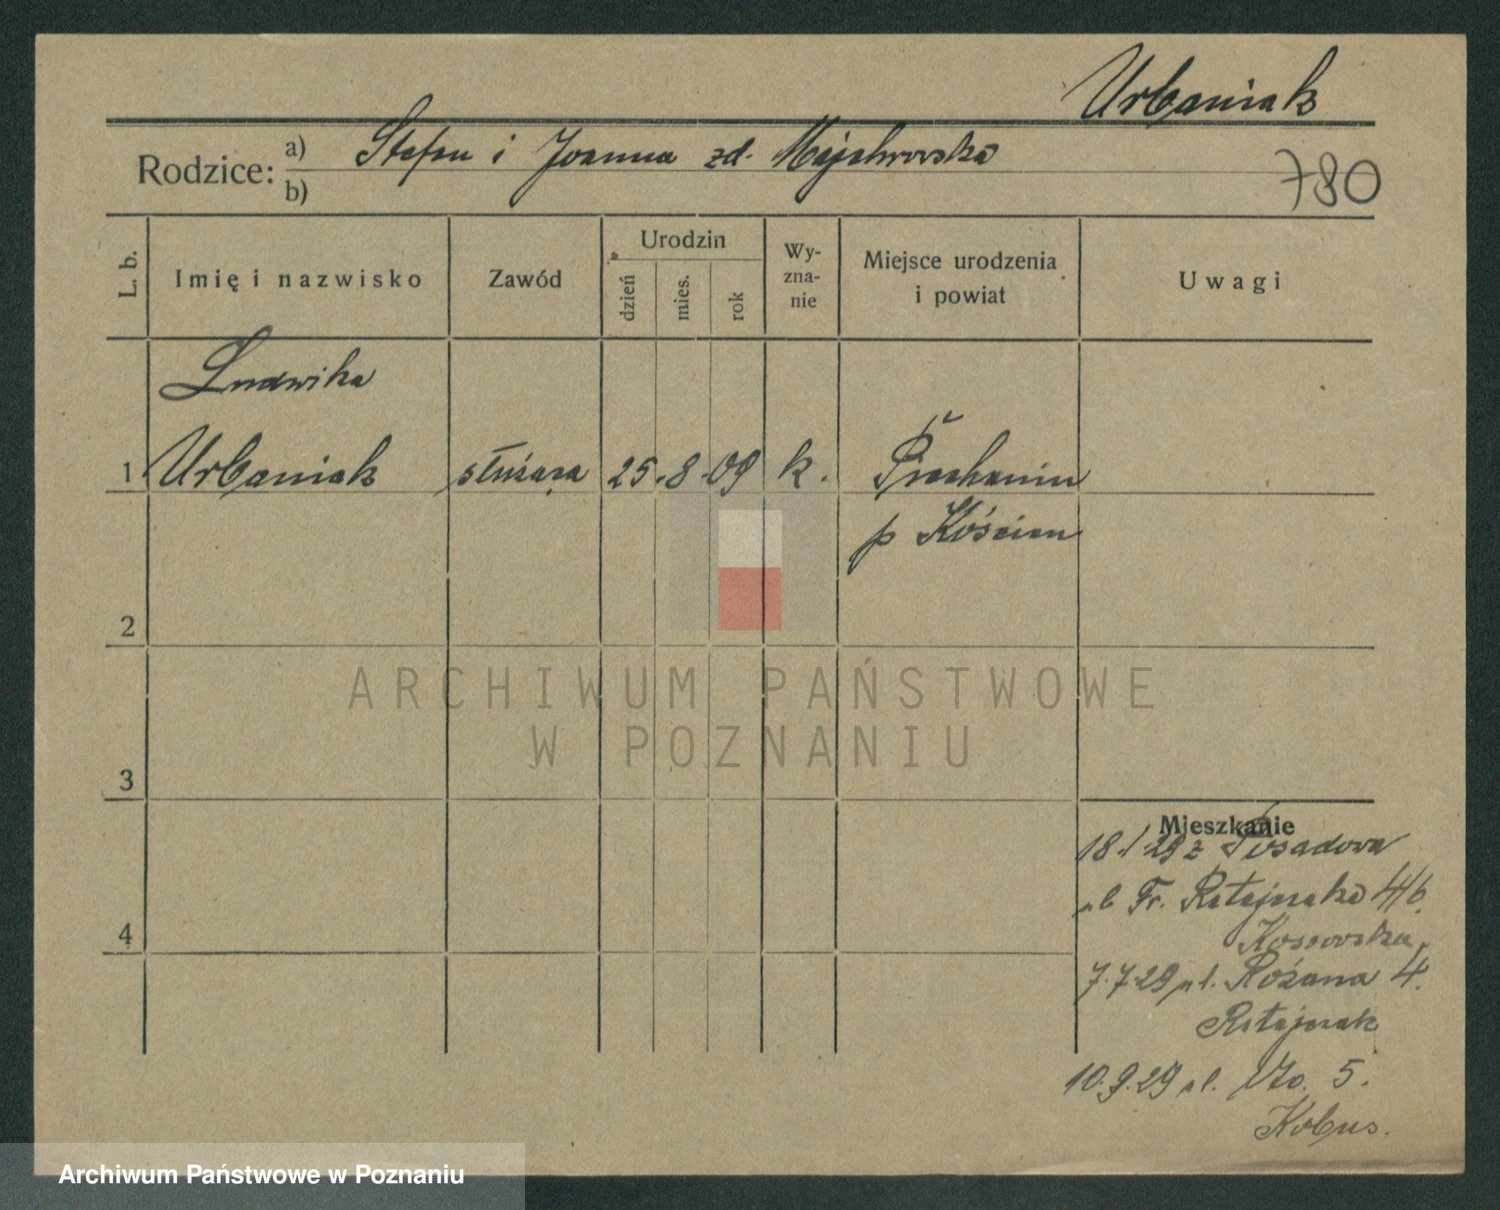 Urbaniak
Rodzice: a) Stefan i Joanna zd. Majchrowska
b)
780
L. b.
Imię i nazwisko
Zawód
Urodzin
dzień
mies.
rok
Wy-
zna-
nie
Miejsce urodzenia
i powiat
Uwagi
Ludwika
1 Urbaniak służąca 25. 8. 09 k.
p Kościan
2
3
4
Mieszkanie
18.1.29 z Posadowa
ul. Fr. Ratajczaka
Kossowska
7.7.29 ul. Różana 4.
Ratajczak
10.9.29 ul. 5.
Kobus.
ARCHIWUM PAŃSTWOWE
W POZNANIU
Archiwum Państwowe w Poznaniu